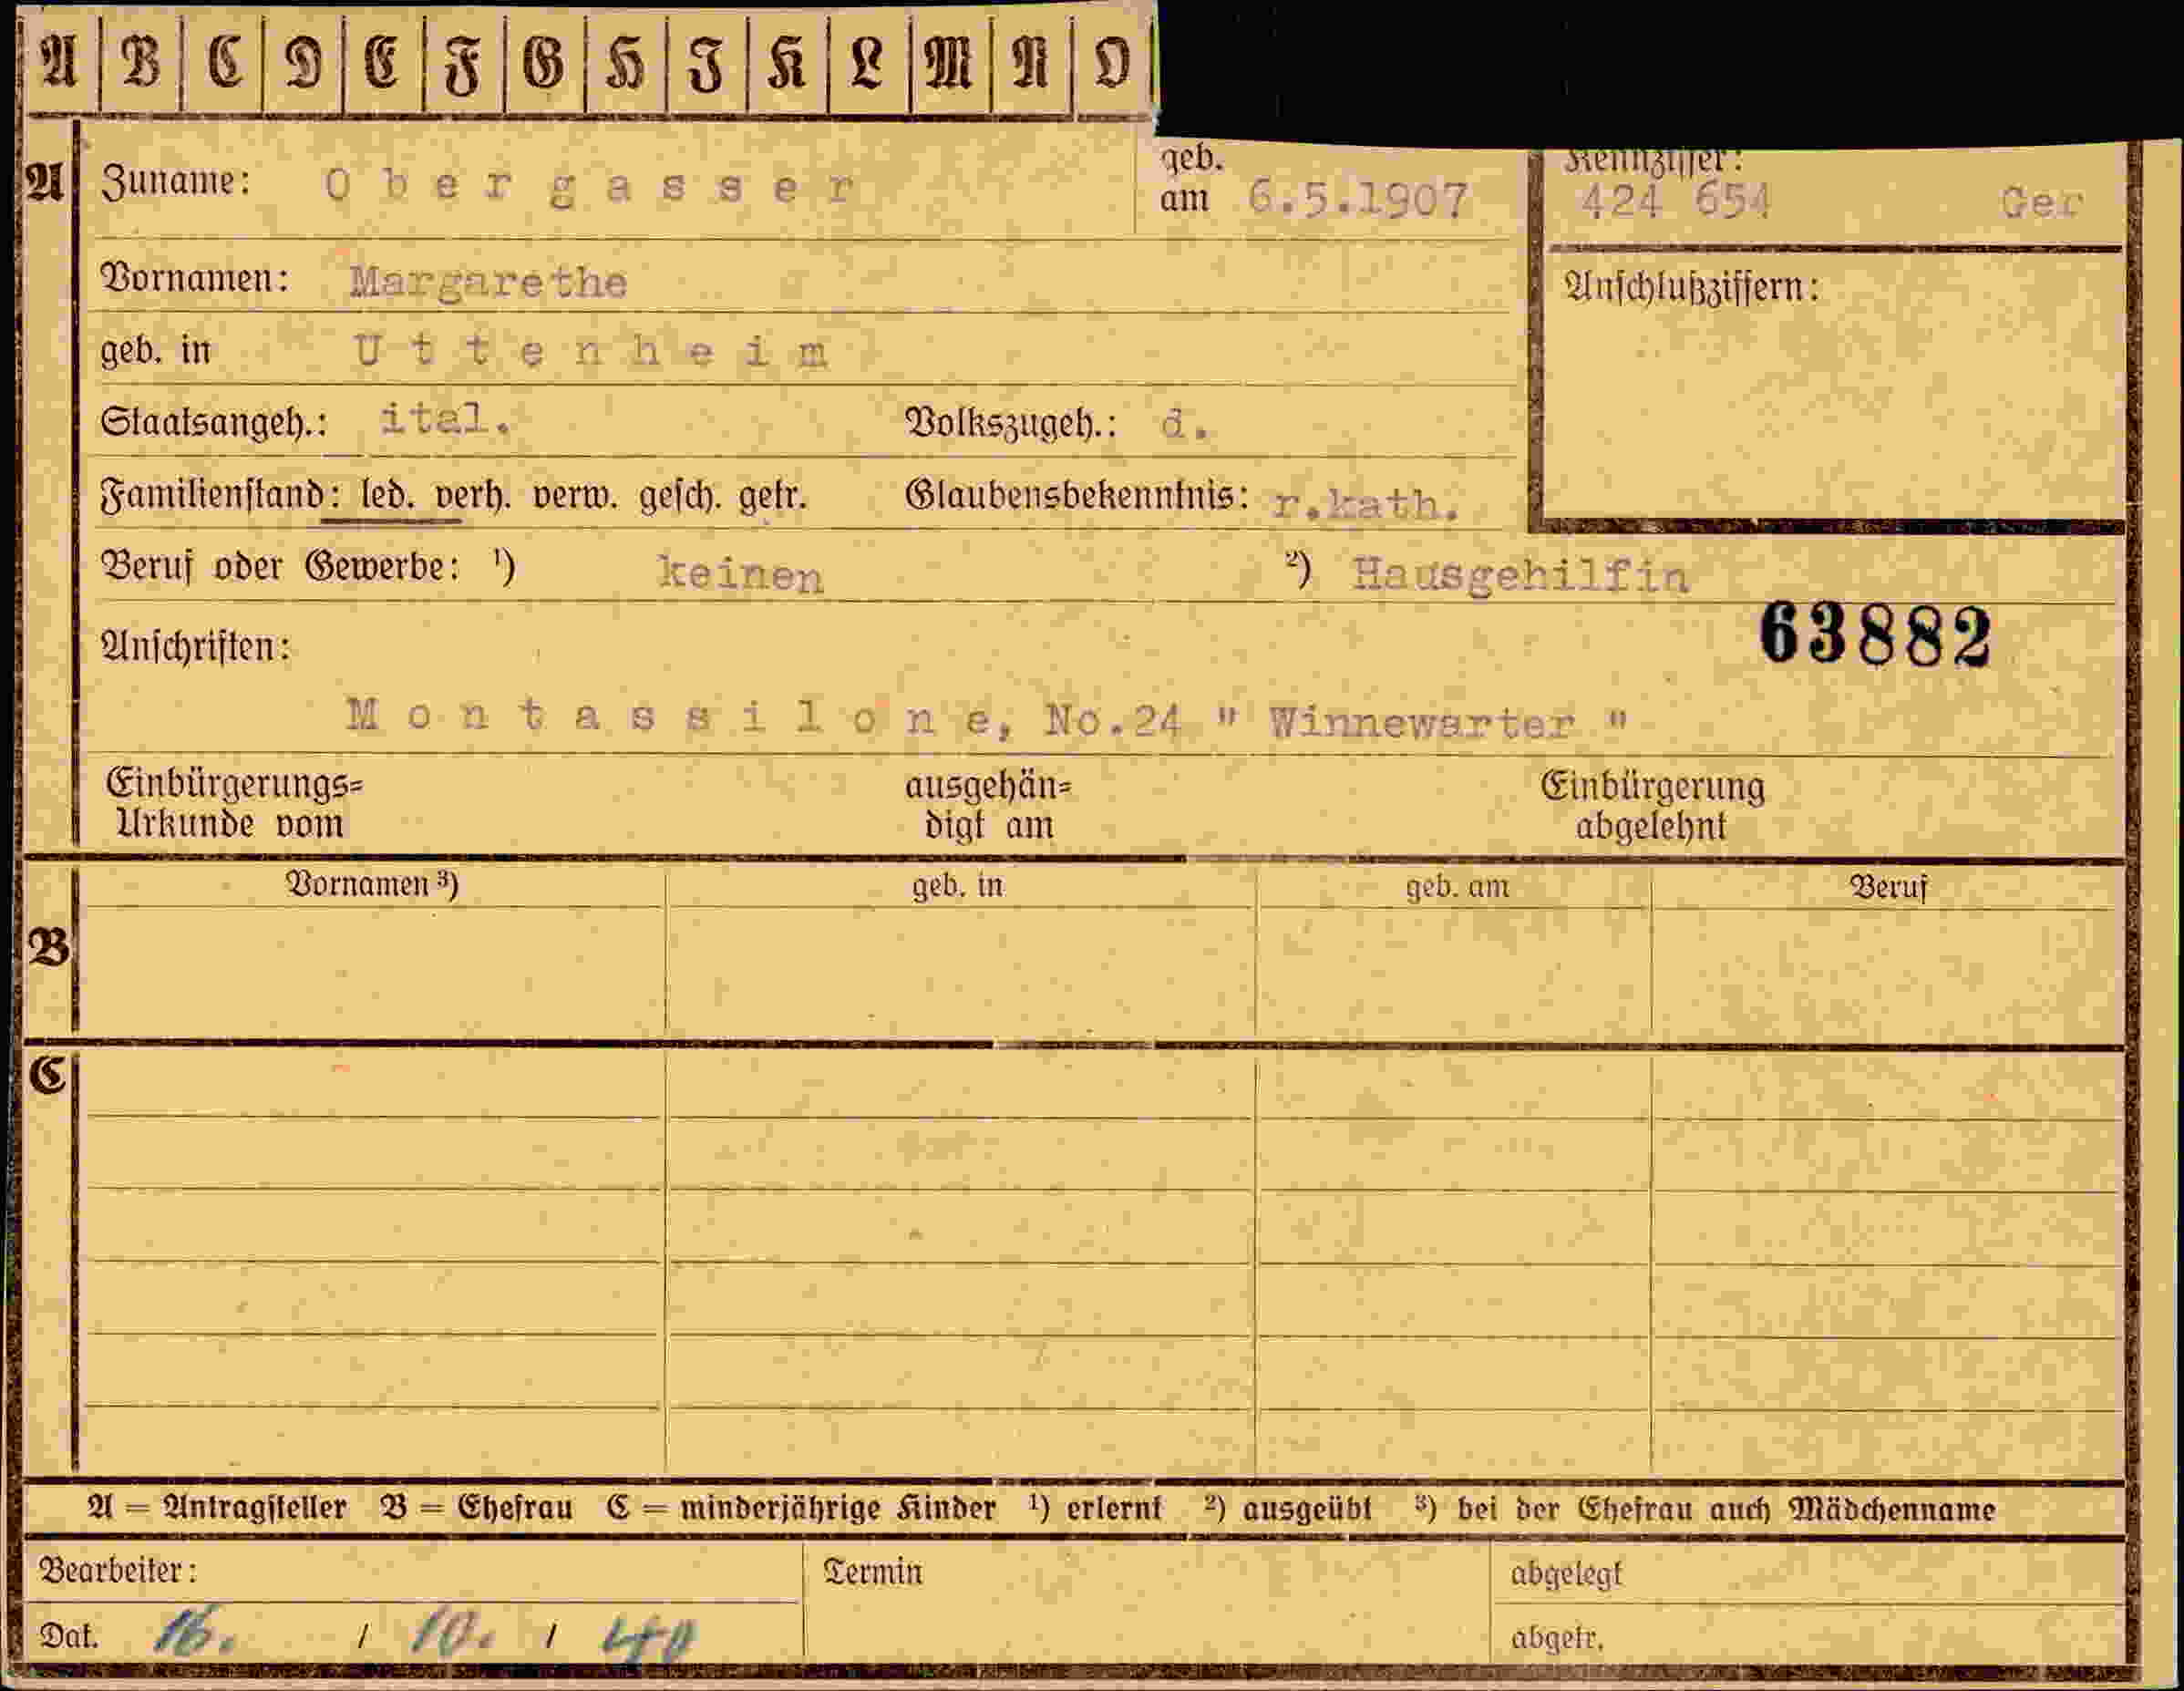 A B C D E F G H I K L M N O
A Zuname: Obergasser geb. am 6.5.1907 Kennziffer: 424 654 Ger
Vornamen: Margarethe Anschlußziffern:
geb. in Uttenheim
Staatsangeh.: ital. Volkszugeh.: d.
Familienstand: led. verh. verw. gesch. getr. Glaubensbekenntnis: r.kath.
Beruf oder Gewerbe: ¹) keinen ²) Hausgehilfin
63882
Anschriften:
Montassilone, No.24 " Winnewarter "
Einbürgerungs= ausgehän= Einbürgerung
Urkunde vom digt am abgelehnt
Vornamen ³) geb. in geb. am Beruf
B
C
A = Antragsteller B = Ehefrau C = minderjährige Kinder ¹) erlernt ²) ausgeübt ³) bei der Ehefrau auch Mädchenname
Bearbeiter: Termin abgelegt
Dat. 16. / 10. / 40 abgetr.